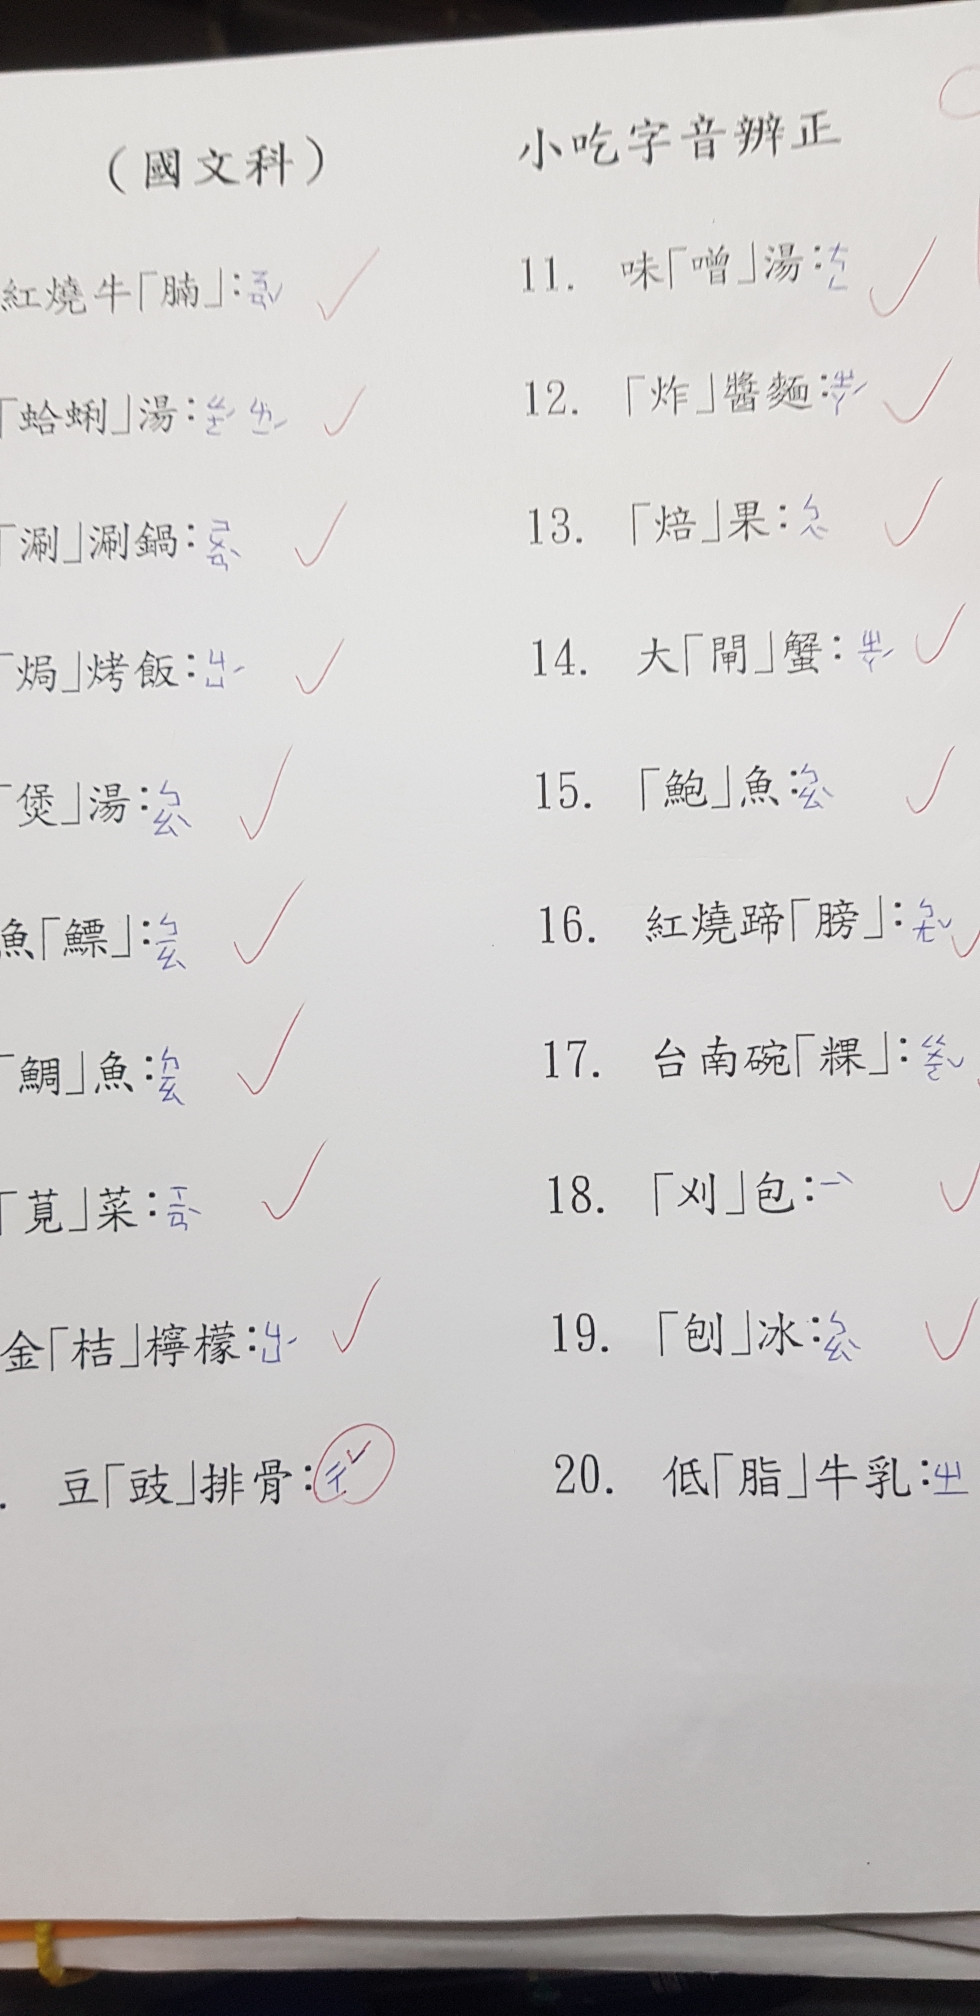 （國文科） 小吃字音辨正
紅燒牛「腩」：ㄋㄢˇ
「蛤蜊」湯：ㄍㄜˊ ㄌㄧˊ
「涮」涮鍋：ㄕㄨㄢˋ
「焗」烤飯：ㄐㄩˊ
「煲」湯：ㄅㄠ
魚「鰾」：ㄅㄧㄠˋ
「鯛」魚：ㄉㄧㄠ
「莧」菜：ㄒㄧㄢˋ
金「桔」檸檬：ㄐㄩˊ
. 豆「豉」排骨：ㄔˇ
11. 味「噌」湯：ㄘㄥ
12. 「炸」醬麵：ㄓㄚˊ
13. 「焙」果：ㄅㄟˋ
14. 大「閘」蟹：ㄓㄚˊ
15. 「鮑」魚：ㄅㄠˋ
16. 紅燒蹄「膀」：ㄅㄤˇ
17. 台南碗「粿」：ㄍㄨㄛˇ
18. 「刈」包：ㄧˋ
19. 「刨」冰：ㄅㄠˋ
20. 低「脂」牛乳：ㄓ